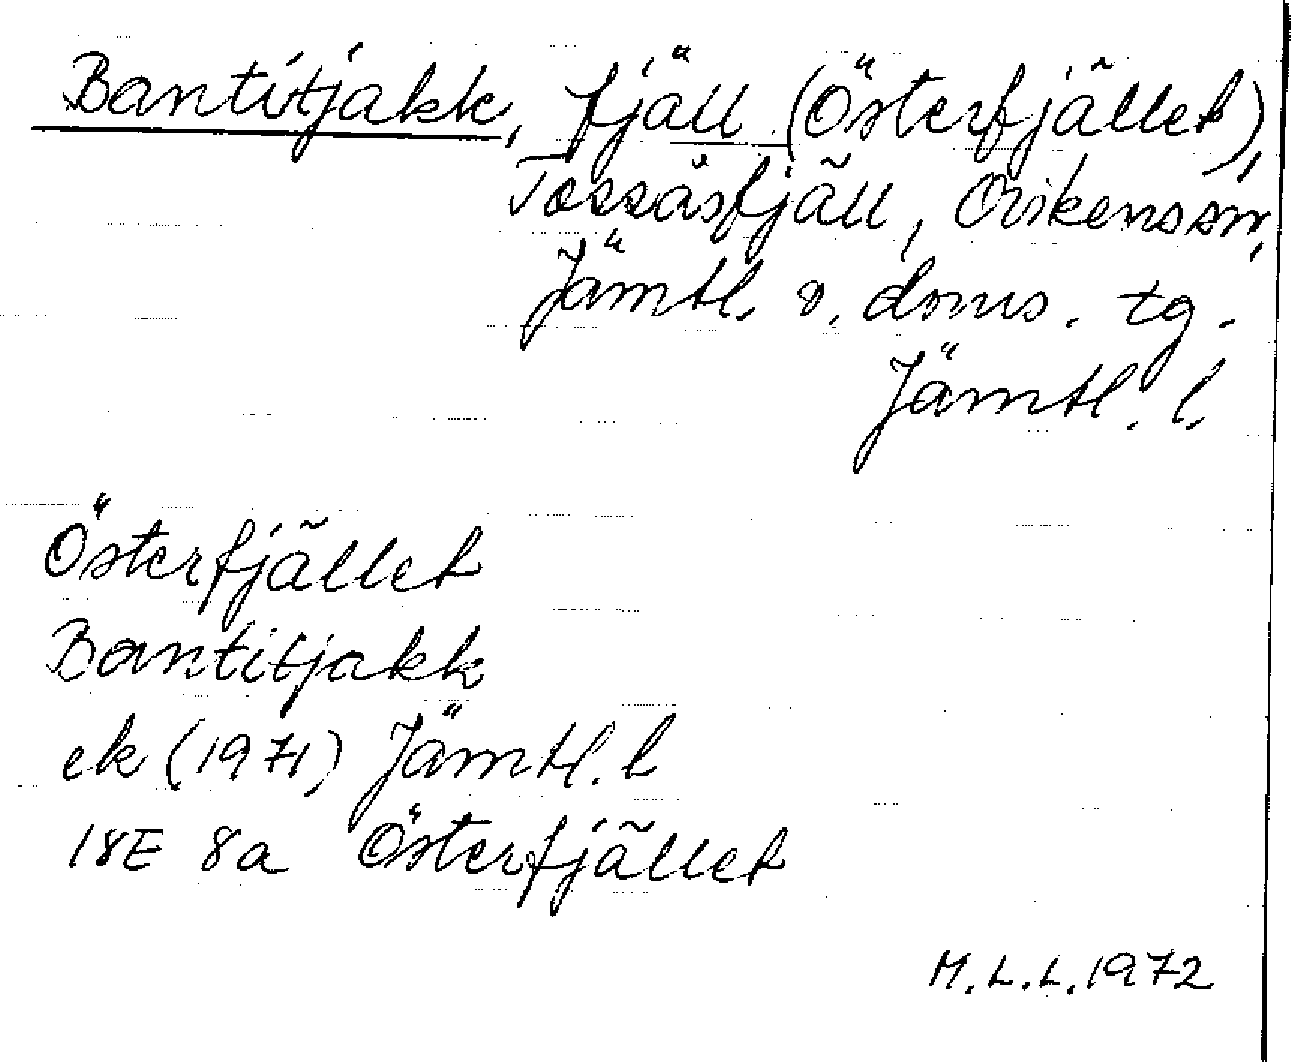 Bantitjakk, fjäll (Österfjället),
Tossåsfjäll, Ovikens sn,
Jämtl. v. doms. tg.
Jämtl. l.
Österfjället
Bantitjakk
ek (1971) Jämtl. l
18E 8a Österfjället
M.L.L. 1972